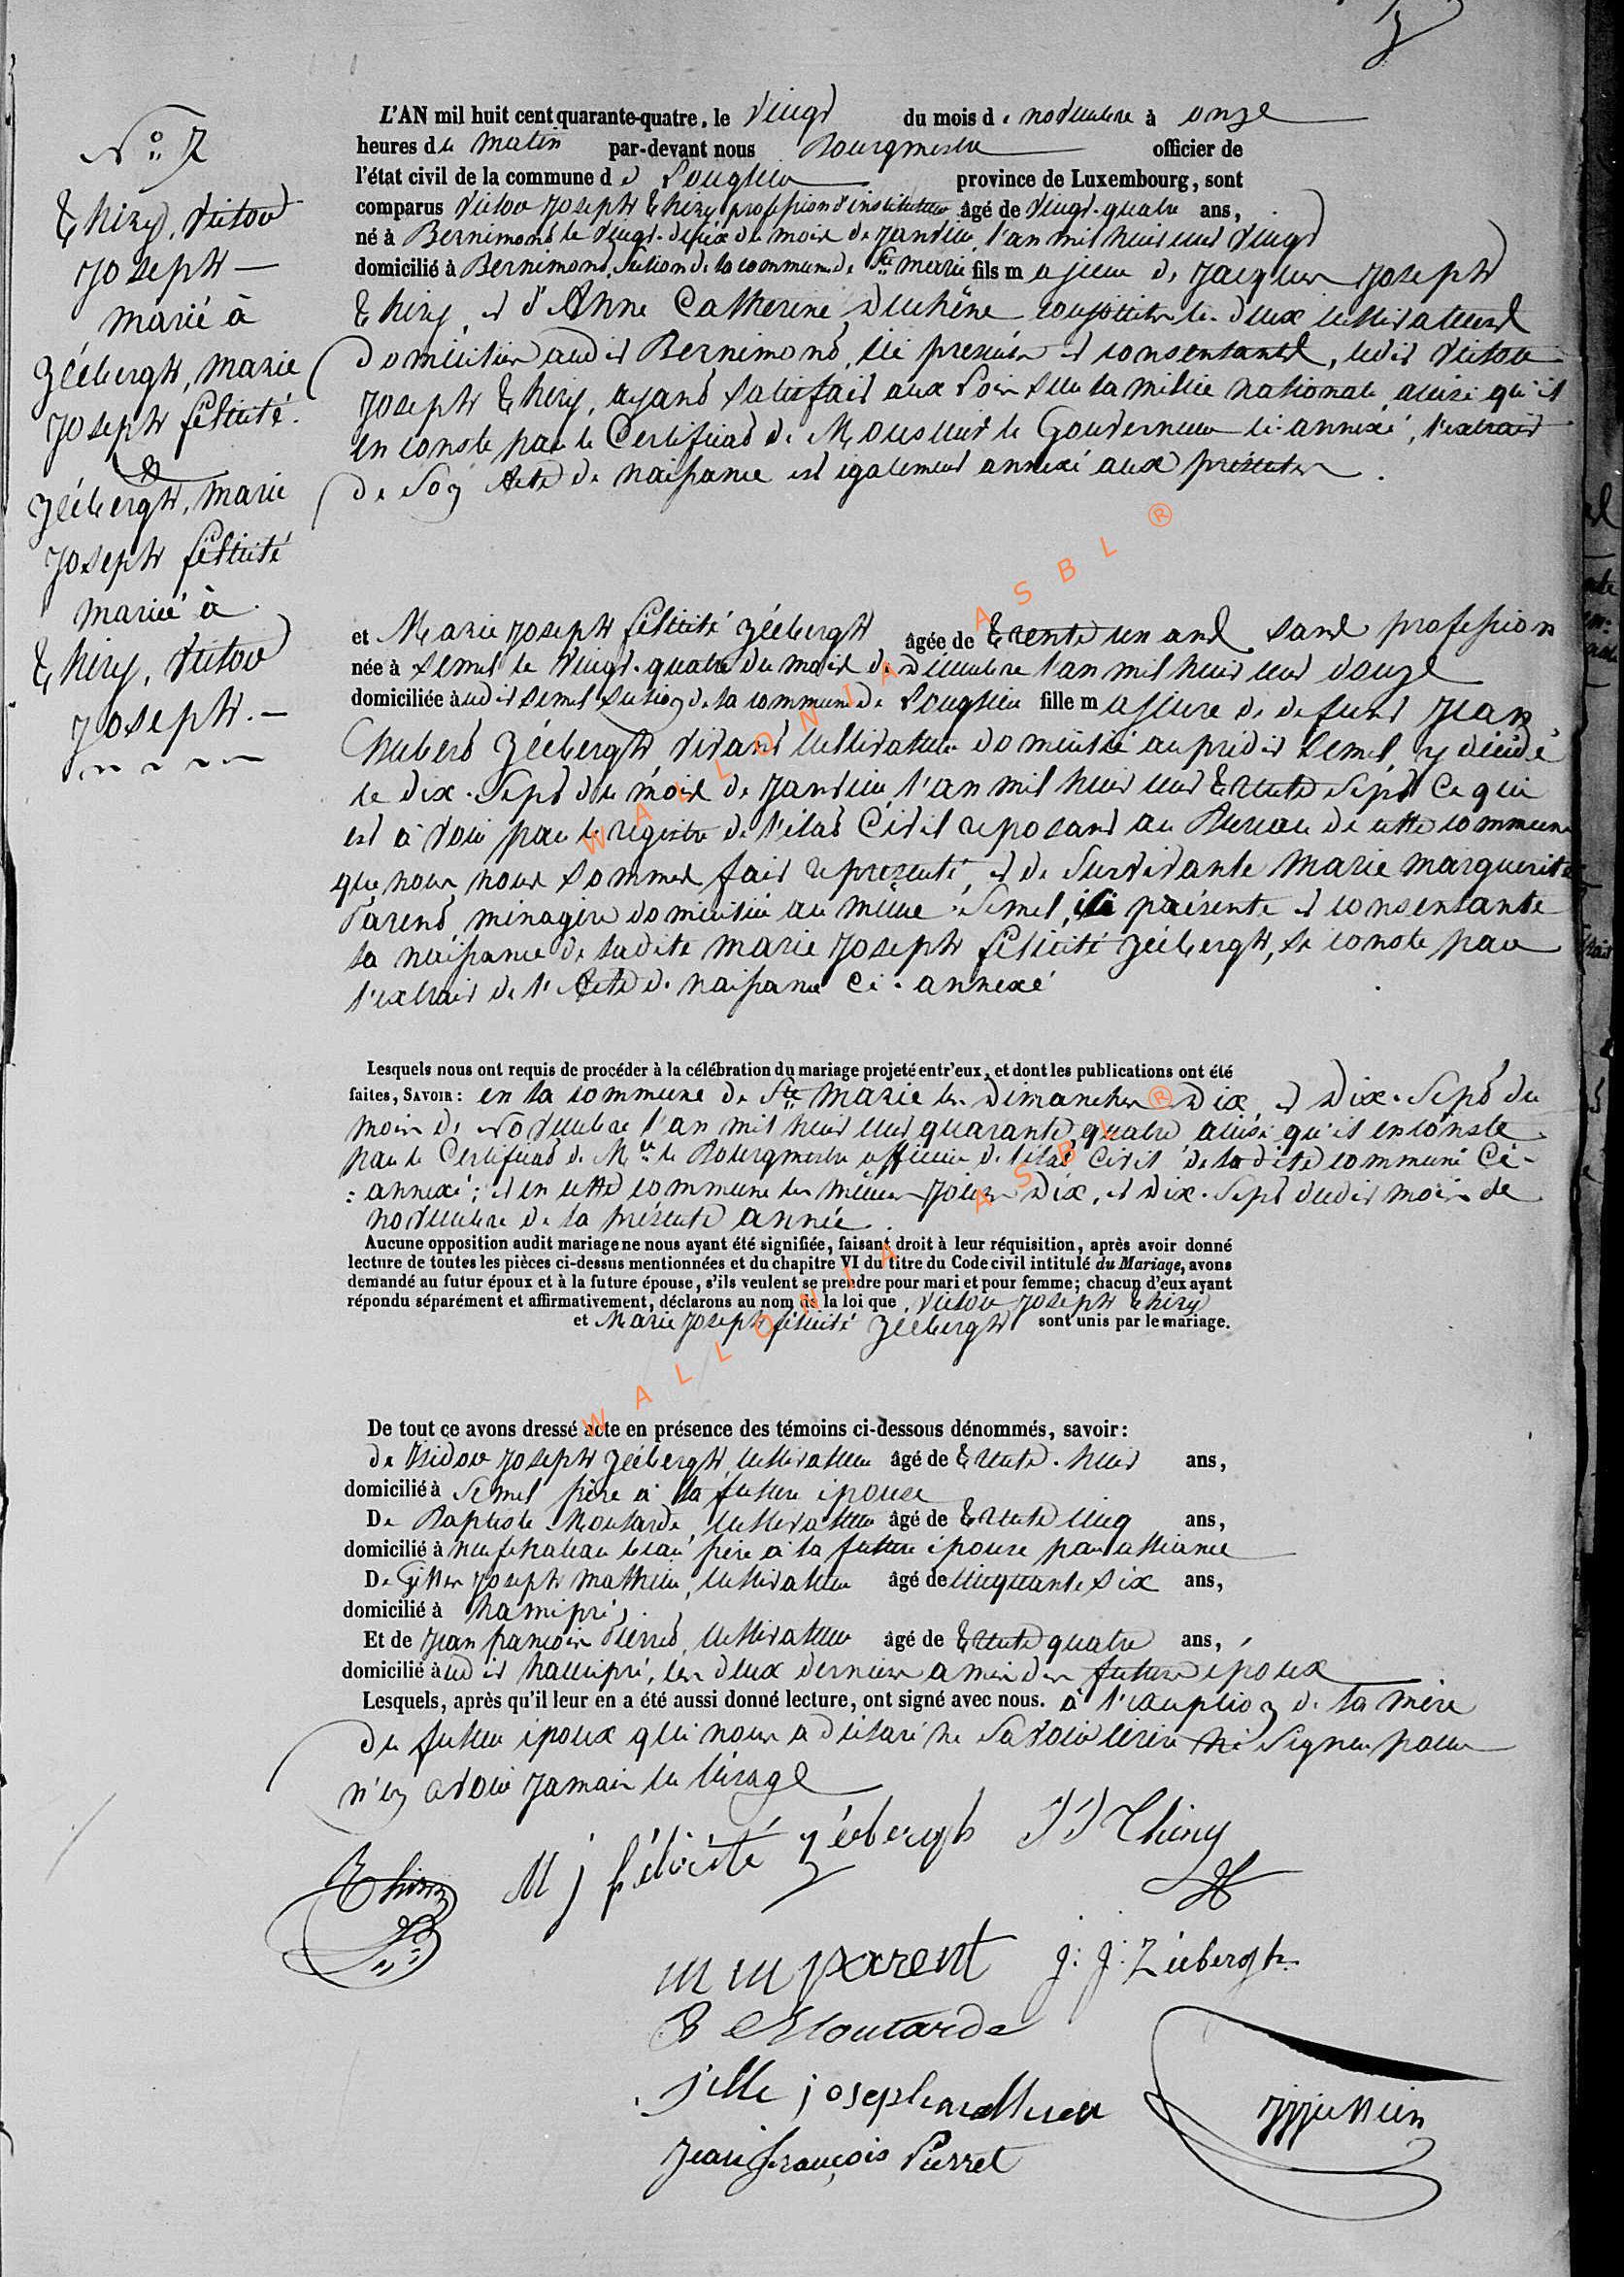 N° 7
Thiry, Victor
Joseph —
marié à
Zéebergh, marie
Joseph félicité.
&
Zéebergh, marie
Joseph félicité
mariée à
Thiry, Victor
Joseph. —
L'AN mil huit cent quarante-quatre, le vingt du mois de novembre à onze
heures du matin par-devant nous Bourgmestre officier de
l'état civil de la commune de Longlier province de Luxembourg, sont
comparus Victor Joseph Thiry profession d'instituteur âgé de vingt-quatre ans,
né à Bernimont le vingt-deux du mois de Janvier l'an mil huit cent vingt
domicilié à Bernimont, Section de la commune de Ste marie fils majeur de Jacques Joseph
Thiry, et d'Anne Catherine Duchêne conjoints les deux cultivateurs
domiciliés audit Bernimont, ici présents et consentants, ledit Victor
Joseph Thiry, ayant satisfait aux Lois sur la milice nationale, ainsi qu'il
en conste par le Certificat de Monsieur le Gouverneur ci-annexé, l'extrait
de Son Acte de naissance est également annexé aux présentes.
et Marie Joseph félicité Zéebergh âgée de trente un ans sans profession
née à Semel le vingt-quatre du mois de Décembre l'an mil huit cent douze
domiciliée audit Semel Section de la commune de Longlier fille majeure de défunt Jean
Hubert Zéebergh, vivant cultivateur domicilié au prédit Semel, y décédé
le dix-Sept du mois de Janvier l'an mil huit cent trente Sept Ce qui
est à voir par le registre de l'état Civil reposant au Bureau de cette commune
que nous nous sommes fait représenté, et de Survivante Marie Marguerite
Parent, ménagère domiciliée au même Semel, ici présente et consentante
la naissance de ladite marie Joseph félicité Zéebergh, se conste par
l'extrait de l'Acte de naissance Ci-annexé
Lesquels nous ont requis de procéder à la célébration du mariage projeté entr'eux, et dont les publications ont été
faites, SAVOIR: en la commune de Ste Marie les Dimanches Dix, et Dix-Sept du
mois de Novembre l'an mil huit cent quarante quatre ainsi qu'il en conste
par le Certificat de Mr le Bourgmestre officier de l'état Civil de ladite commune Ci-
: annexé; et en cette commune les mêmes jours Dix, et Dix-Sept dudit mois de
novembre de la présente année.
Aucune opposition audit mariage ne nous ayant été signifiée, faisant droit à leur réquisition, après avoir donné
lecture de toutes les pièces ci-dessus mentionnées et du chapitre VI du titre du Code civil intitulé du Mariage, avons
demandé au futur époux et à la future épouse, s'ils veulent se prendre pour mari et pour femme; chacun d'eux ayant
répondu séparément et affirmativement, déclarons au nom de la loi que Victor Joseph Thiry
et Marie Joseph félicité Zéebergh sont unis par le mariage.
De tout ce avons dressé acte en présence des témoins ci-dessous dénommés, savoir:
de Isidor Joseph Zéebergh, cultivateur âgé de trente-huit ans,
domicilié à Semel frère à la future épouse
De Baptiste Moutarde, cultivateur âgé de trente cinq ans,
domicilié à neufchateau beau frère à la future épouse par alliance
De Gilles Joseph Mathieu, cultivateur âgé de cinquante six ans,
domicilié à hamipré,
Et de Jean françois Pierret, cultivateur âgé de trente quatre ans,
domicilié audit hamipré, les deux derniers amis des futurs époux
Lesquels, après qu'il leur en a été aussi donné lecture, ont signé avec nous. à l'exception de la mère
du futur époux qui nous a déclaré ne Savoir écrire ni Signer pour
n'en avoir jamais eu l'usage
Thiry M j félicité zéebergh J J Thiry
m m parent j: j: Zéebergh
B Moutarde
jille joseph mathieu
Jean françois Pierret
WALLONIA ASBL ®
WALLONIA ASBL ®